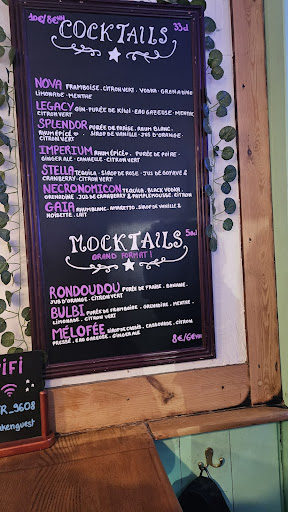 10€/8€HH
COCKTAILS
33cl
NOVA FRAMBOISE . CITRON VERT . VODKA . GRENADINE
LIMONADE . MENTHE
LEGACY GIN . PURÉE DE KIWI . EAU GAZEUSE . MENTHE
CITRON VERT
SPLENDOR PURÉE DE FRAISE . RHUM BLANC .
RHUM ÉPICÉ . SIROP DE VANILLE . JUS D'ORANGE .
CITRON VERT
IMPERIUM RHUM ÉPICÉ . PURÉE DE POIRE .
GINGER ALE . CANNELLE . CITRON VERT
STELLA TEQUILA . SIROP DE ROSE . JUS DE GOYAVE &
CRANBERRY . CITRON VERT
NECRONOMICON TEQUILA . BLACK VODKA
GRENADINE . JUS DE CRANBERRY & PAMPLEMOUSSE . CITRON
GAIA RHUM BLANC . AMARETTO . SIROP DE VANILLE &
NOISETTE . LAIT
MOCKTAILS
50cl
GRAND FORMAT !
RONDOUDOU PURÉE DE FRAISE . BANANE .
JUS D'ORANGE . CITRON VERT
BULBI PURÉE DE FRAMBOISE . GRENADINE . MENTHE .
LIMONADE . CITRON VERT
MÉLOFÉE SIROP DE CASSIS . CARDAMOME . CITRON
PRESSÉ . EAU GAZEUSE . GINGER ALE
8€/6€HH
WiFi
R_9608
kenguest